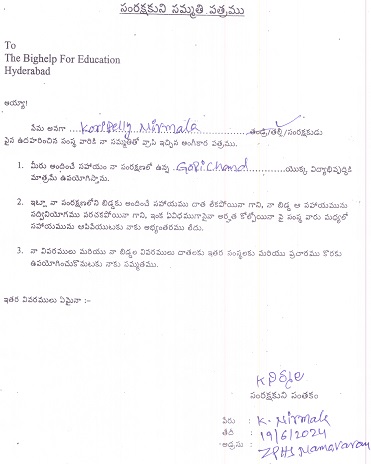 సంరక్షకుని సమ్మతి పత్రము
To
The Bighelp For Education
Hyderabad
అయ్యా!
నేను అనగా ....Koripelly Nirmala.... తండ్రి/తల్లి/సంరక్షకుడు
పైన ఉదహరించిన సంస్థ వారికి నా సమ్మతితో వ్రాసి ఇచ్చిన అంగీకార పత్రము.
1. మీరు అందించే సహాయం నా సంరక్షణలో ఉన్న ..Gopi Chand....యొక్క విద్యాభివృద్ధికి
మాత్రమే ఉపయోగిస్తాను.
2. ఇట్లా నా సంరక్షణలోని బిడ్డకు అందించే సహాయము దాత లేకపోయినా గాని, నా బిడ్డ ఆ సహాయమును
సద్వినియోగము పరచకపోయినా గాని, ఇంక ఏవిధముగానైనా అర్హత కోల్పోయినా పై సంస్థ వారు మధ్యలో
సహాయమును ఆపివేయుటకు నాకు అభ్యంతరము లేదు.
3. నా వివరములు మరియు నా బిడ్డల వివరములు దాతలకు ఇతర సంస్థలకు మరియు ప్రచారము కొరకు
ఉపయోగించుకొనుటకు నాకు సమ్మతము.
ఇతర వివరములు ఏమైనా :-
సంరక్షకుని సంతకం
పేరు : K. Nirmala
తేది : 19/6/2024
అడ్రసు : ZPHS Mamavaram